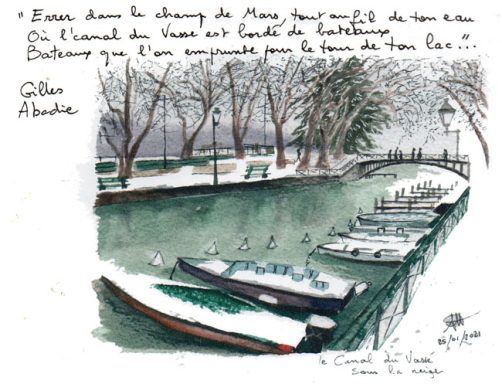 "Errer dans le champ de Mars, tout au fil de ton eau
Où l'canal du Vasse est bordé de bateaux
Bateaux que l'on emprunte pour le tour de ton lac"...
Gilles
Abadie
25/01/2021
le Canal du Vassé
sous la neige